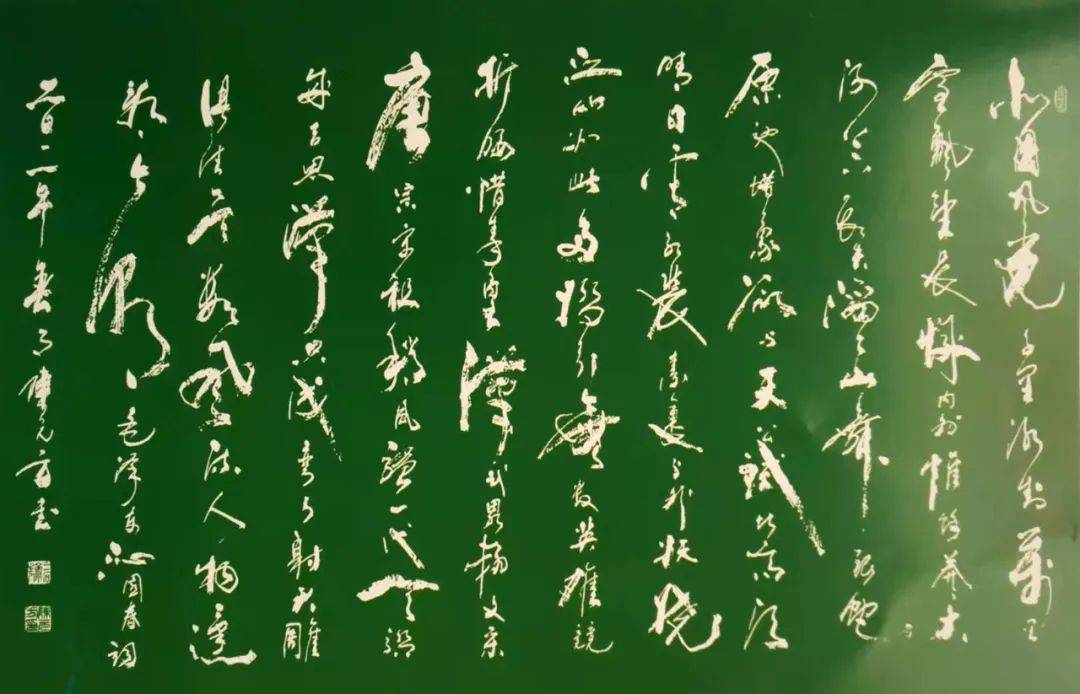 北国风光千里冰封万里
雪飘望长城内外惟余莽莽大
河上下顿失滔滔山舞银蛇
原驰蜡象欲与天公试比高须
晴日看红装素裹分外妖娆
江山如此多娇引无数英雄竞
折腰惜秦皇汉武略输文采
唐宗宋祖稍逊风骚一代天骄
成吉思汗只识弯弓射大雕
俱往矣数风流人物还
看今朝毛泽东沁园春词
二年春月